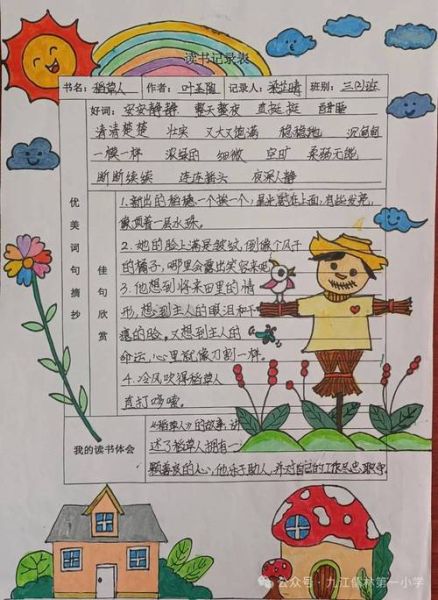 读书记录表
书名：稻草人 作者：叶圣陶 记录人： 班别：三(2)班
好词：安安静静 整天整夜 直挺挺 酣睡
清清楚楚 壮实 又大又饱满 稳稳地 沉甸甸
一模一样 浓绿的 细微 空旷 柔弱无能
断断续续 连连摇头 夜深人静
优美词句摘抄
佳句欣赏
1.新出的稻穗一个挨一个，星光射在上面，有些发亮，
像顶着一层水珠。
2.她的脸上满是皱纹，倒像个风干
的橘子，哪里会露出笑容来呢
3.他想到将来田里的情
形，想到主人的眼泪和干
瘪的脸，又想到主人的
命运，心里就像刀割一样。
4.冷风吹得稻草人
直打哆嗦。
我的读书体会
《稻草人》的故事，讲
述了稻草人拥有一
颗善良的心，他乐于助人，并对自己的工作尽忠职守
公众号·九江儒林第一小学